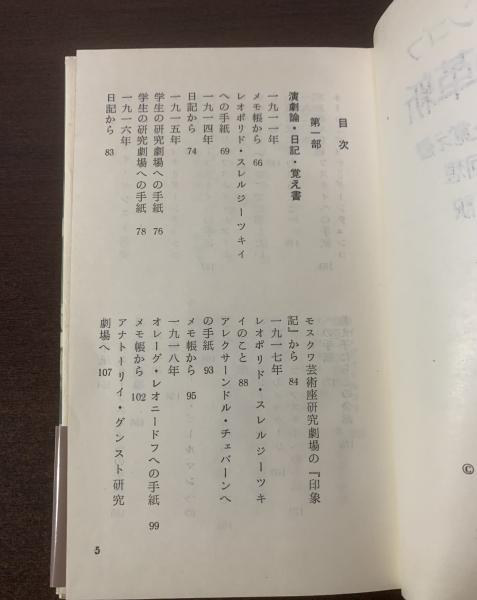 目次
第一部
演劇論・日記・覚え書
一九一一年
メモ帳から 66
レオポリド・スレルジーツキイ
への手紙 69
一九一四年
日記から 74
一九一五年
学生の研究劇場への手紙 76
学生の研究劇場への手紙 78
一九一六年
日記から 83
モスクワ芸術座研究劇場の『印象
記』から 84
一九一七年
レオポリド・スレルジーツキ
イのこと 88
アレクサーンドル・チェバーンへ
の手紙 93
メモ帳から 95
一九一八年
オレーグ・レオニードフへの手紙 99
メモ帳から 102
アナトーリイ・グンスト研究
劇場へ 107
5
革新
訳
©